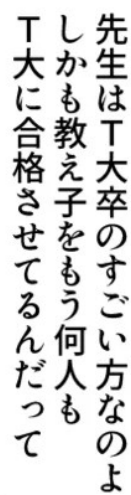 先生はT大卒のすごい方なのよ
しかも教え子をもう何人も
T大に合格させてるんだって